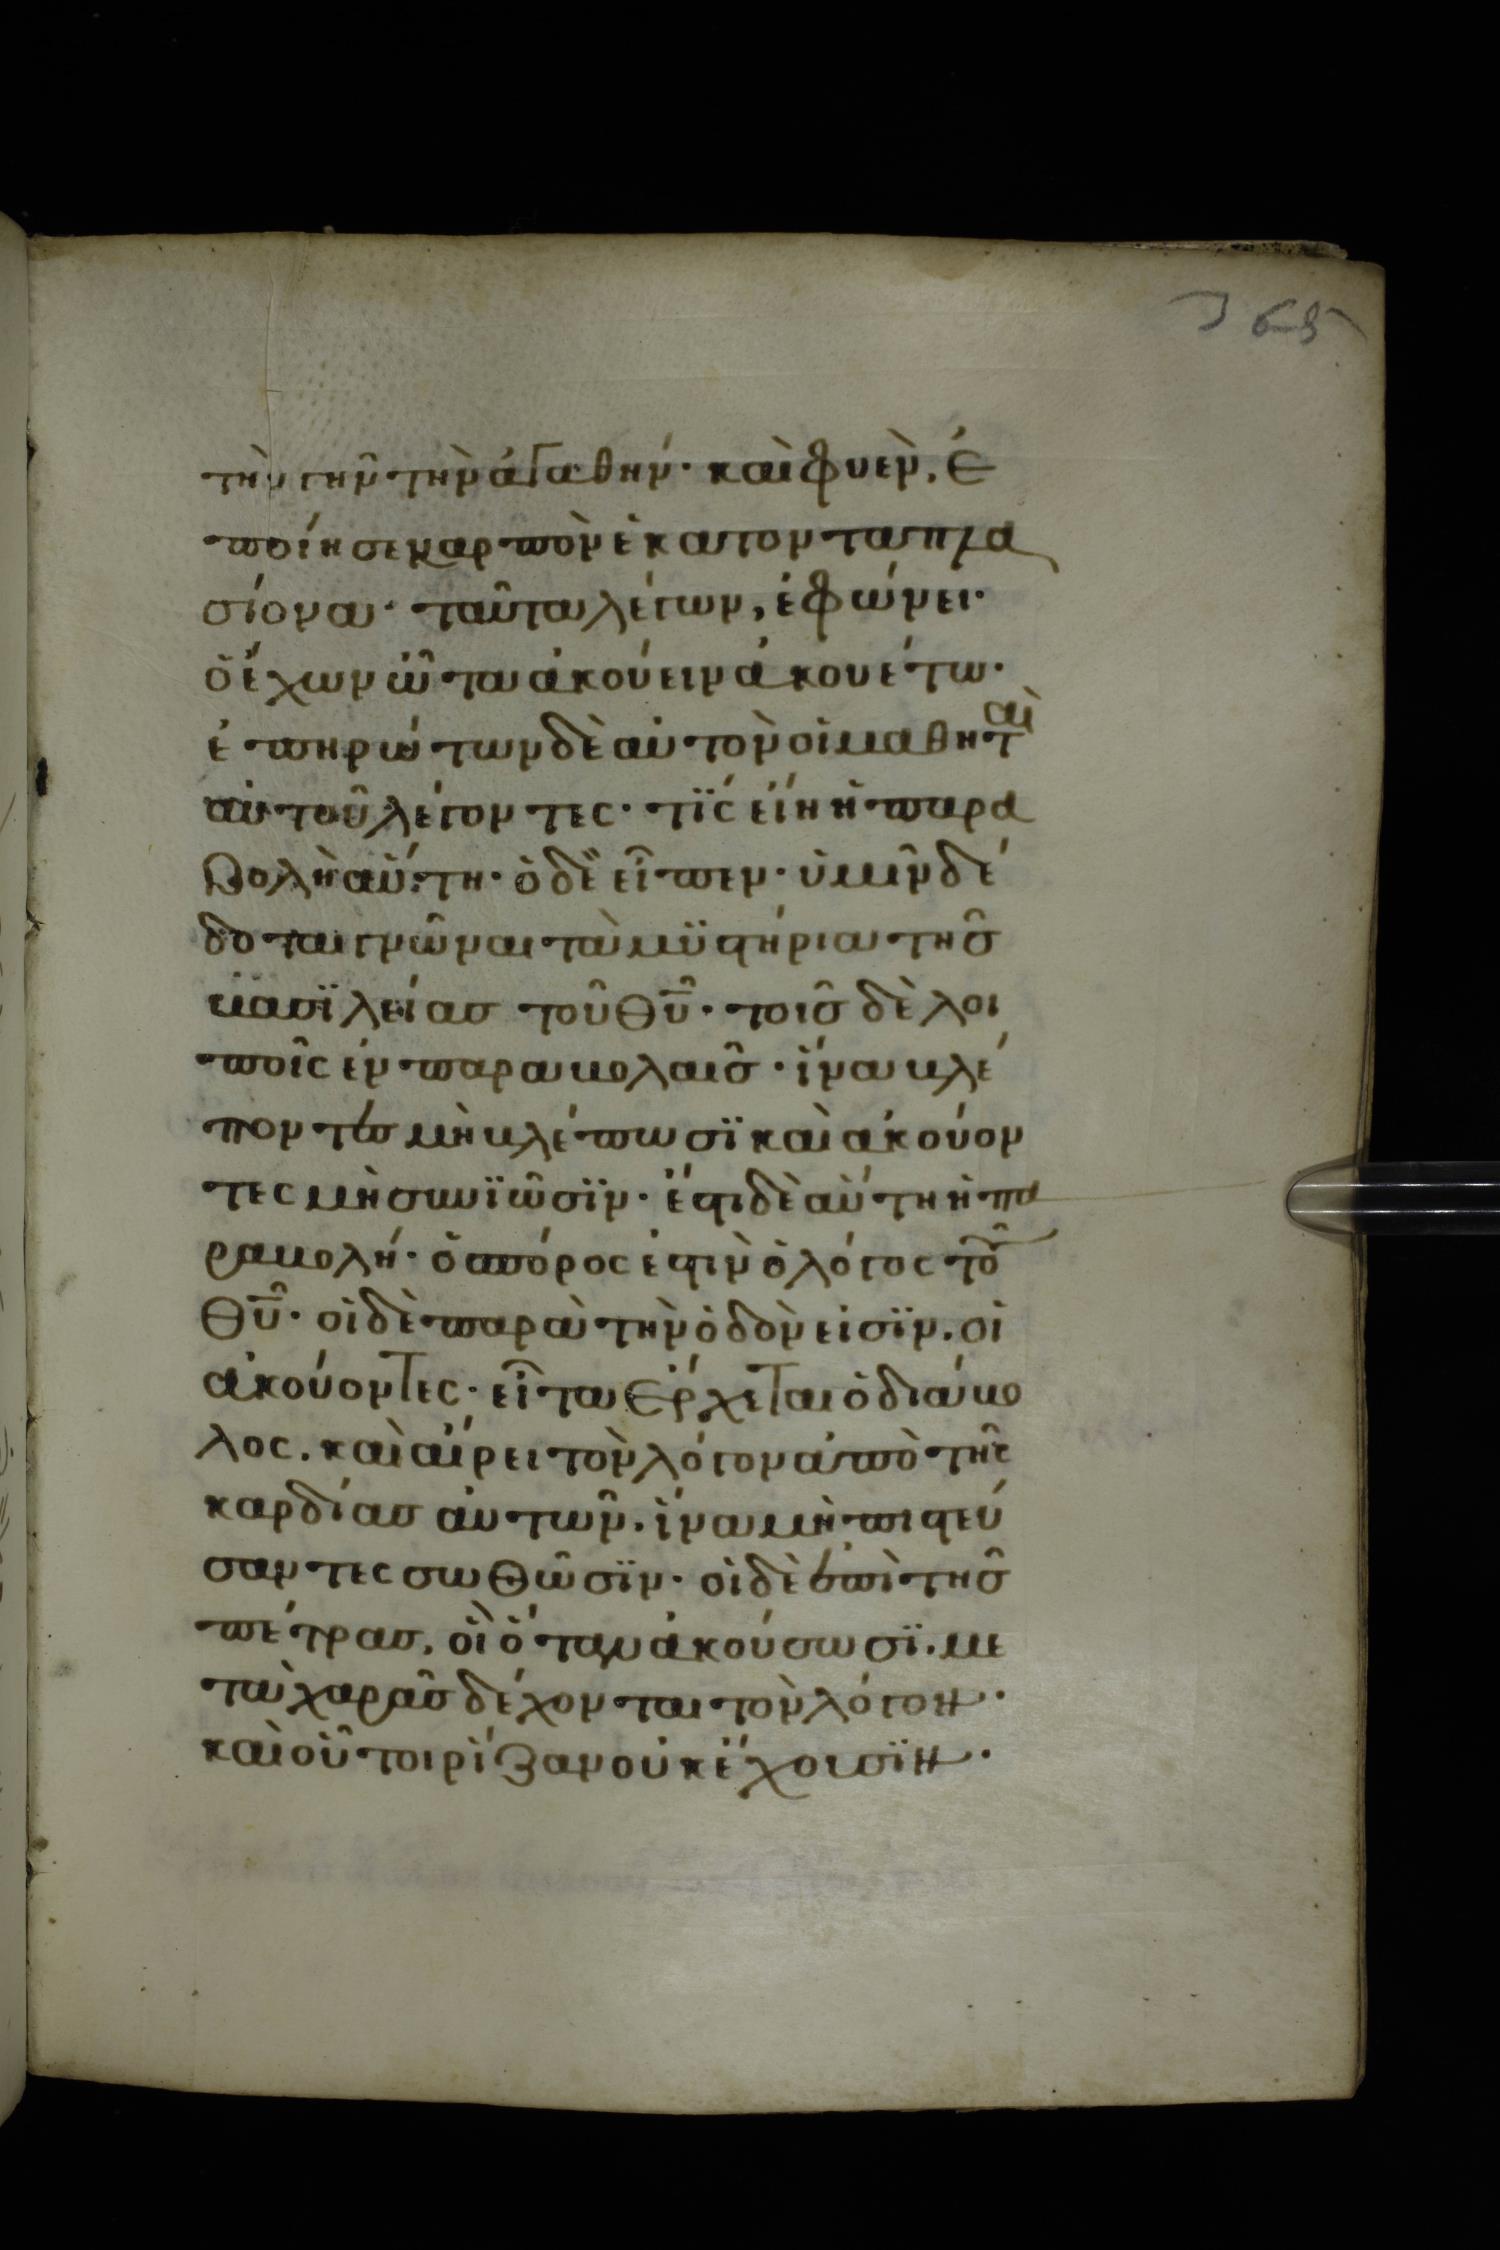 365
τὴν γην̑ τὴν ἀγαθήν· καὶ φυὲν, ἐ
ποίησε καρπὸν ἑκατονταπλα
σίονα· ταῦτα λέγων, ἐφώνει·
ὁ ἔχων ὦτα ἀκούειν ἀκουέτω·
ἐπηρώτων δὲ αὐτὸν οἱ μαθηταὶ
αὐτοῦ λέγοντες· τΐς εἴη ἡ παρα
βολὴ αὕτη· ὁ δὲ εἶπεν· ὑμῖν δέ
δοται γνῶναι τὰ μϋστήρια τῆσ
βασϊλείασ τοῦ θῦ· τοῖσ δὲ λοι
ποῖς ἐν παραβολαῖσ· ἵνα βλέ
ποντες μὴ βλέπωσϊ καὶ ἀκούον
τες μὴ συνϊῶσϊν· ἔστι δὲ αὕτη ἡ πα
ραβολή· ὁ σπόρος ἐστὶν ὁ λόγος τοῦ
θῦ· οἱ δὲ παρὰ τὴν ὁδὸν εἰσϊν. οἱ
ἀκούοντες· εἶτα ἔρχεται ὁ διάβο
λος. καὶ αἴρει τὸν λόγον ἀπὸ τῆς
καρδίασ αὐτῶν. ἵνα μὴ πιστεύ
σαντες σωθῶσϊν· οἱ δὲ ἐπὶ τῆσ
πέτρασ, οἳ ὅταν ἀκούσωσϊ. με
τὰ χαρᾶσ δέχονται τὸν λόγον·
καὶ οὗτοι ρίζαν οὐκ ἔχουσϊν·